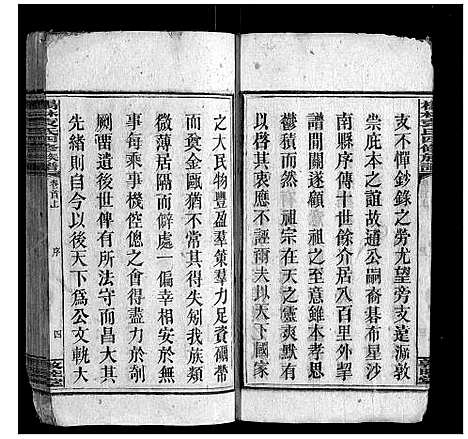 支不憚鈔錄之勞尤望旁支遠㳽敦
崇庇本之誼故通公嗣裔碁布星沙
南縣序傳十世餘介居八百里外努
譜開闢遂顧 祖之至意錐本孝思
鬱積而然 祖宗在天之靈默與
權衡亦應不誣爾夫以天下國家
之大民物豐盈羣策羣力足資礪帶
而奠金甌猶不常其得失矧我族類
微薄居隔而僻處一偏幸相安於無
事每乘事機倥傯之會得盡力於剞
劂䨱遺後世俾有所法守而昌大其
先緒則自今以後天下爲公文軌大
楊林袁氏四修族譜
卷首上
序
四